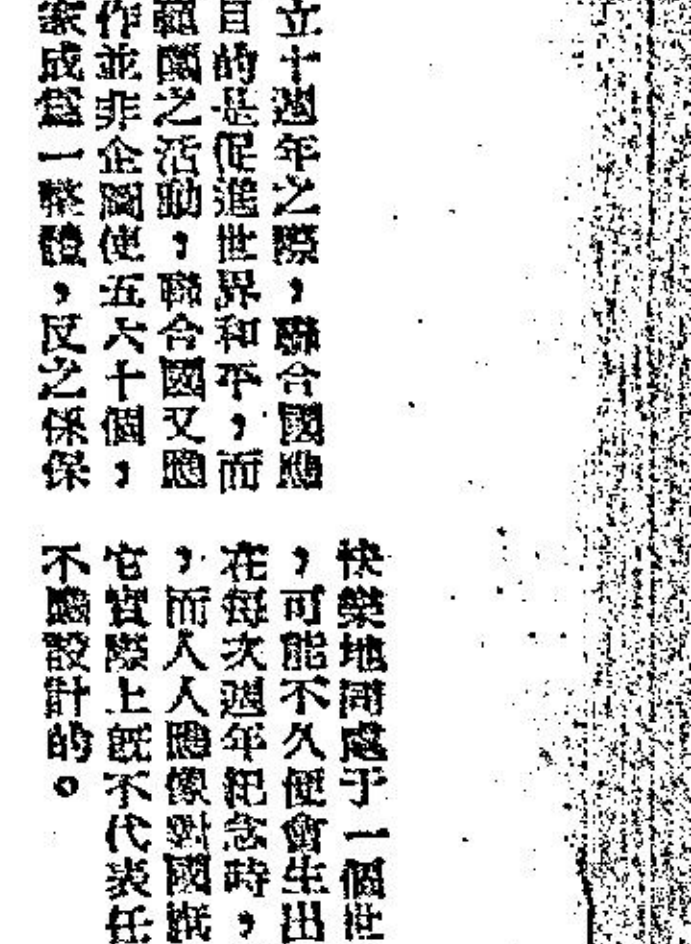 立十週年之際，聯合國應
目的是促進世界和平，而
範圍之活動，聯合國又應
作並非企圖使五六十個，
家成爲一整體，反之係保
快樂地同處于一個世
，可能不久便會生出
在每次週年紀念時，
，而人人應像對國旗
它實際上旣不代表任
不應設計的。